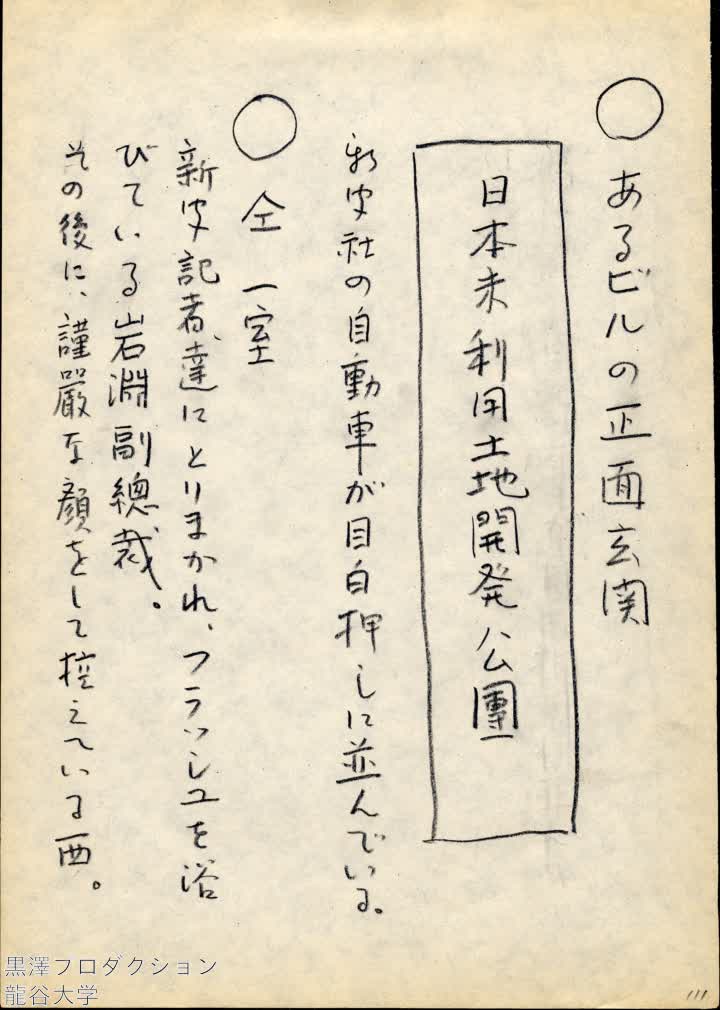 ○ あるビルの正面玄関
日本未利用土地開発公團
新聞社の自動車が目白押しに並んでいる。
○ 仝 一室
新聞記者達にとりまかれ、フラッシュを浴
びている岩淵副總裁。
その後に、謹嚴な顔をして控えている西。
黒澤プロダクション
龍谷大学
111